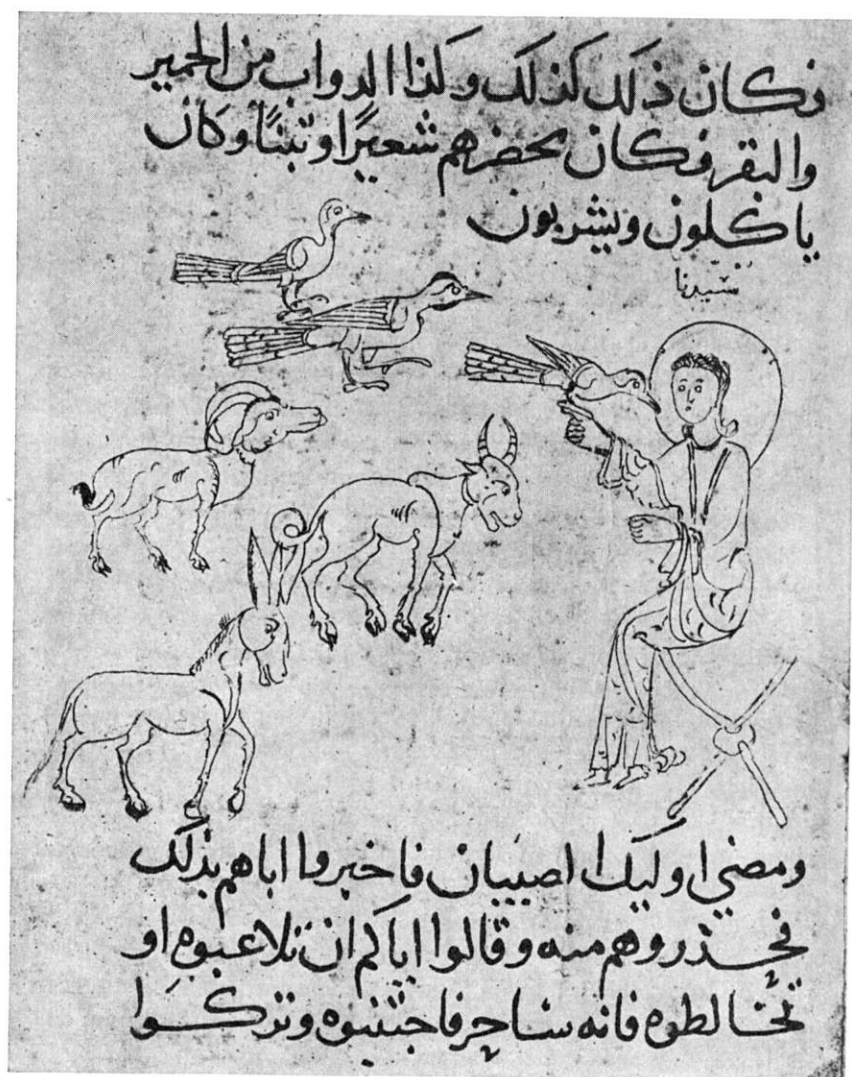 فكان ذلك كذلك وكذا الدواب من الحمير
والبقر فكان يحضرهم شعيرًا وتبنًا وكان
ياكلون ويشربون
سيدنا
ومضي اوليك اصبيان فاخبروا اباهم بذلك
فحذروهم منه وقالوا اياكم ان تلاعبوه او
تخالطوه فانه ساحر فاجتنبوه وتركوا